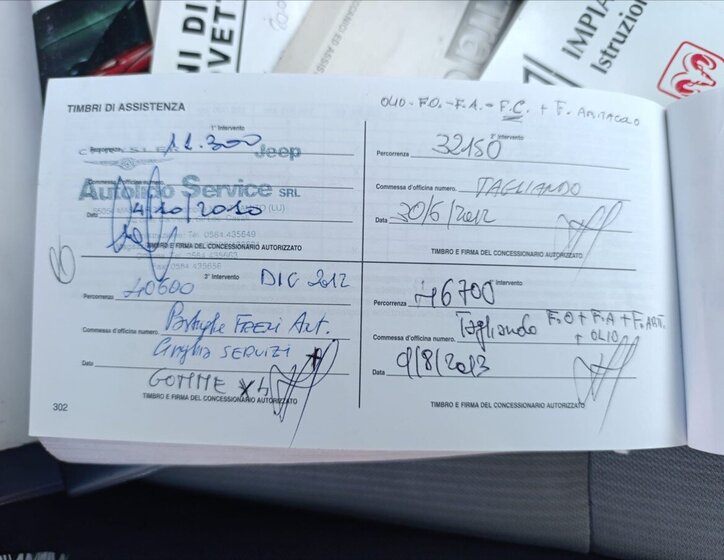 NI DI
OVETT
IMPIA
Istruzio
TIMBRI DI ASSISTENZA
OLIO - F.O. - F.A. - F.C. + F. ABITACOLO
1° Intervento
11.300
Jeep
Autolido Service SRL
Data 4/10/2010
TIMBRO E FIRMA DEL CONCESSIONARIO AUTORIZZATO
2° Intervento
Percorrenza 32150
Commessa d'officina numero TAGLIANDO
Data 30/6/2012
TIMBRO E FIRMA DEL CONCESSIONARIO AUTORIZZATO
3° Intervento DIC 2012
Percorrenza 40600
Commessa d'officina numero Pastiglie FRENI Ant.
Cinghia SERVIZI
Data
GOMME X 4
TIMBRO E FIRMA DEL CONCESSIONARIO AUTORIZZATO
Intervento
Percorrenza 46700
Commessa d'officina numero Tagliando F.O + F.A + F. ABIT.
+ OLIO
Data 9/8/2013
TIMBRO E FIRMA DEL CONCESSIONARIO AUTORIZZATO
302